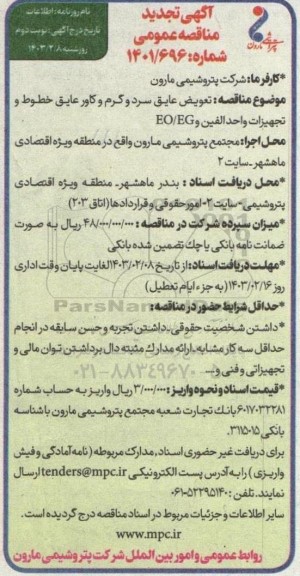 نام روزنامه: اطلاعات
تاریخ درج آگهی: نوبت دوم
روز شنبه: ۱۴۰۳/۲/۸
پتروشیمی مارون
آگهی تجدید
مناقصه عمومی
شماره: ۱۴۰۱/۶۹۶
*کارفرما: شرکت پتروشیمی مارون
موضوع مناقصه: تعویض عایق سرد و گرم و کاور عایق خطوط و
تجهیزات واحد الفین و EO/EG
محل اجرا: مجتمع پتروشیمی مارون واقع در منطقه ویژه اقتصادی
ماهشهر-سایت ۲
*محل دریافت اسناد: بندر ماهشهر- منطقه ویژه اقتصادی
پتروشیمی- سایت ۲- امور حقوقی و قراردادها (اتاق ۲۰۳)
*میزان سپرده شرکت در مناقصه: ۴۸/۰۰۰/۰۰۰/۰۰۰ ریال به صورت
ضمانت نامه بانکی یا چک تضمین شده بانکی
*مهلت دریافت اسناد: از تاریخ ۱۴۰۳/۰۲/۰۸ لغایت پایان وقت اداری
روز ۱۴۰۳/۰۲/۱۶ (به جزء ایام تعطیل)
*حداقل شرایط حضور در مناقصه:
*داشتن شخصیت حقوقی، داشتن تجربه و حسن سابقه در انجام
حداقل سه کار مشابه، ارائه مدارک مثبته دال بر داشتن توان مالی و
تجهیزاتی و فنی و...
*قیمت اسناد و نحوه واریز: ۳/۰۰۰/۰۰۰ ریال واریز به حساب شماره
۶۰۱۷۰۳۲۲۸۱ بانک تجارت شعبه مجتمع پتروشیمی مارون با شناسه
بانکی ۳۱۱۵۰۱۵.
برای دریافت غیر حضوری اسناد، مدارک مربوطه (نامه آمادگی و فیش
واریزی) را به آدرس پست الکترونیکی tenders@mpc.ir ارسال
نمایند. تلفن: ۵۲۲۹۵۱۴۰-۰۶۱
سایر اطلاعات و جزئیات مربوط در اسناد مناقصه درج گردیده است.
www.mpc.ir
روابط عمومی و امور بین الملل شرکت پتروشیمی مارون